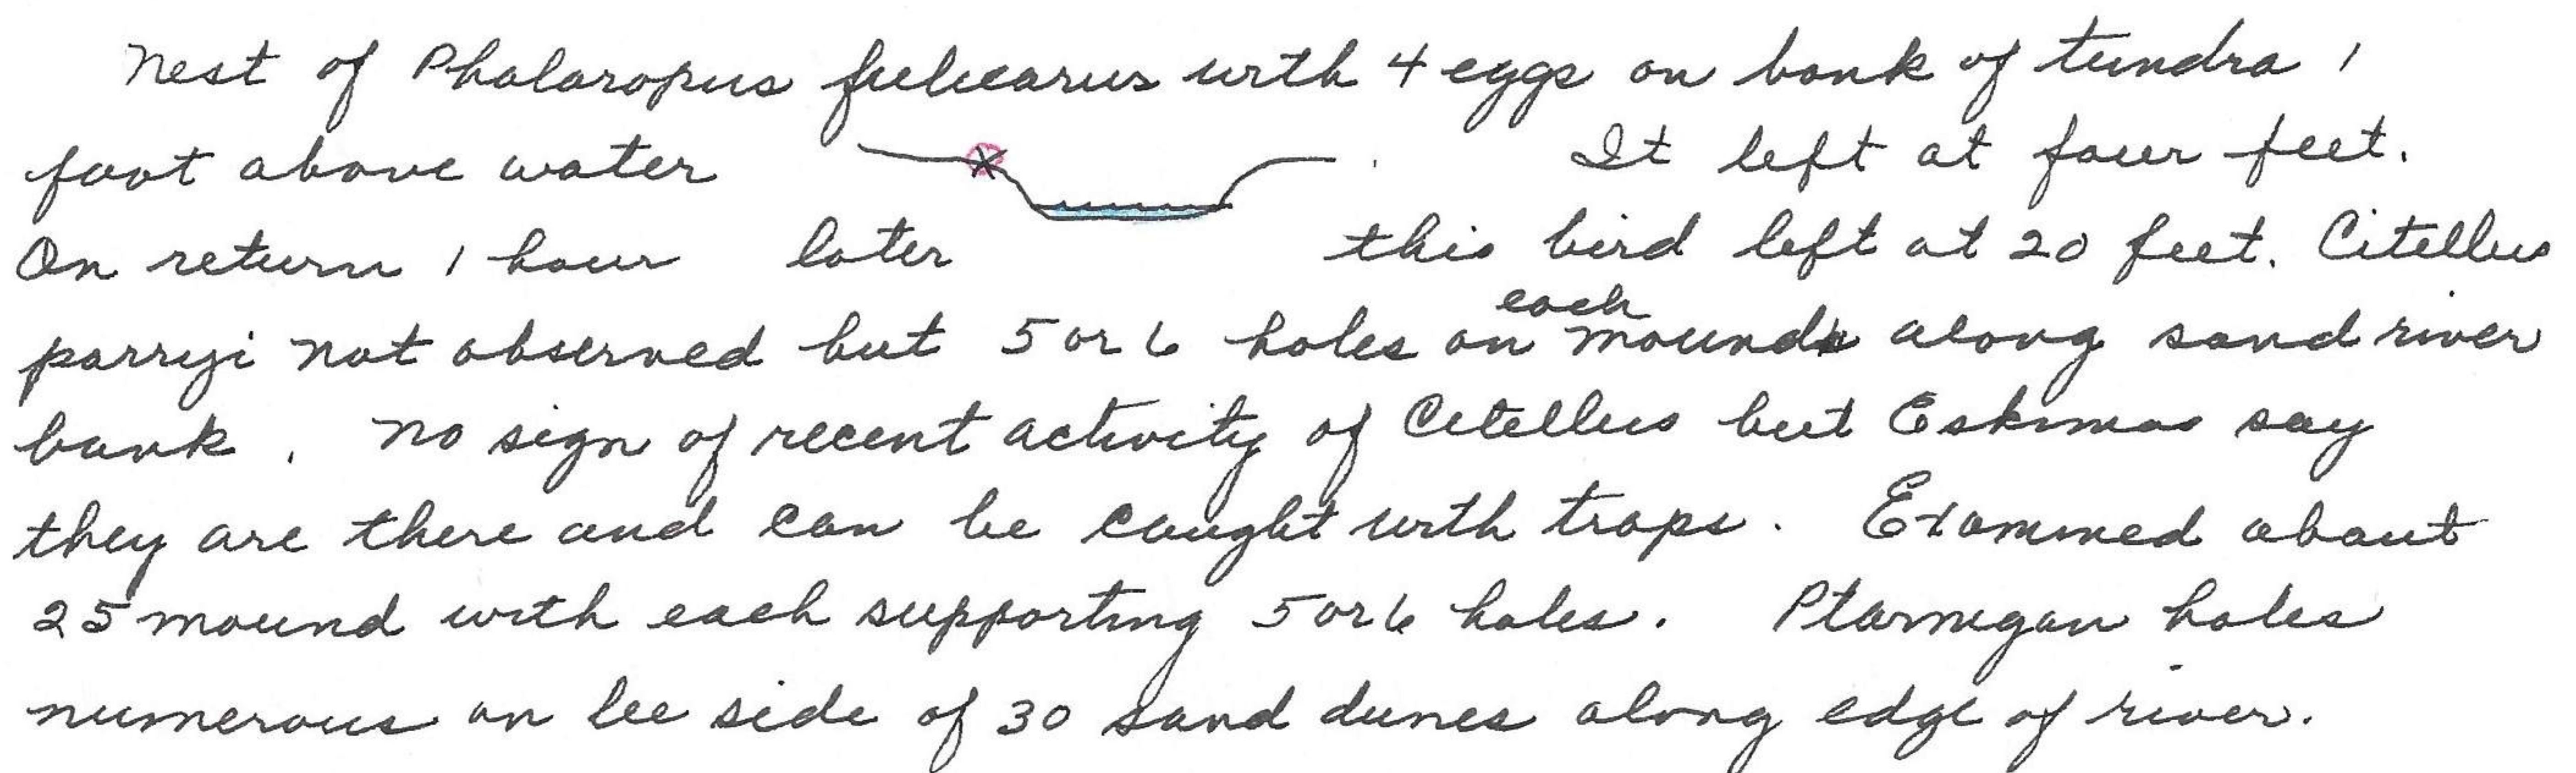 Nest of Phalaropus fulicarus with 4 eggs on bank of tundra 1
foot above water . It left at four feet.
On return 1 hour later this bird left at 20 feet. Citellus
parryi not observed but 5 or 6 holes on each mound along sand river
bank. No sign of recent activity of Citellus but Eskimos say
they are there and can be caught with traps. Examined about
25 mound with each supporting 5 or 6 holes. Ptarmigan holes
numerous on lee side of 30 sand dunes along edge of river.